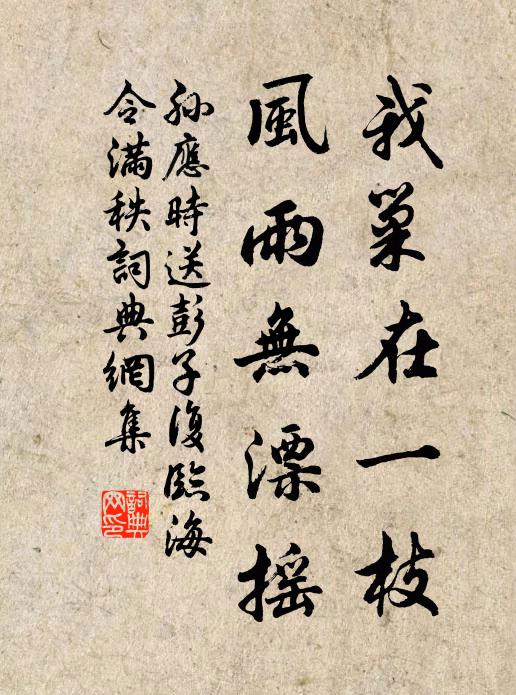 我巢在一枝
風雨無漂搖
孫應時送彭子復臨海
令滿秩詞典網集
詞典
网印